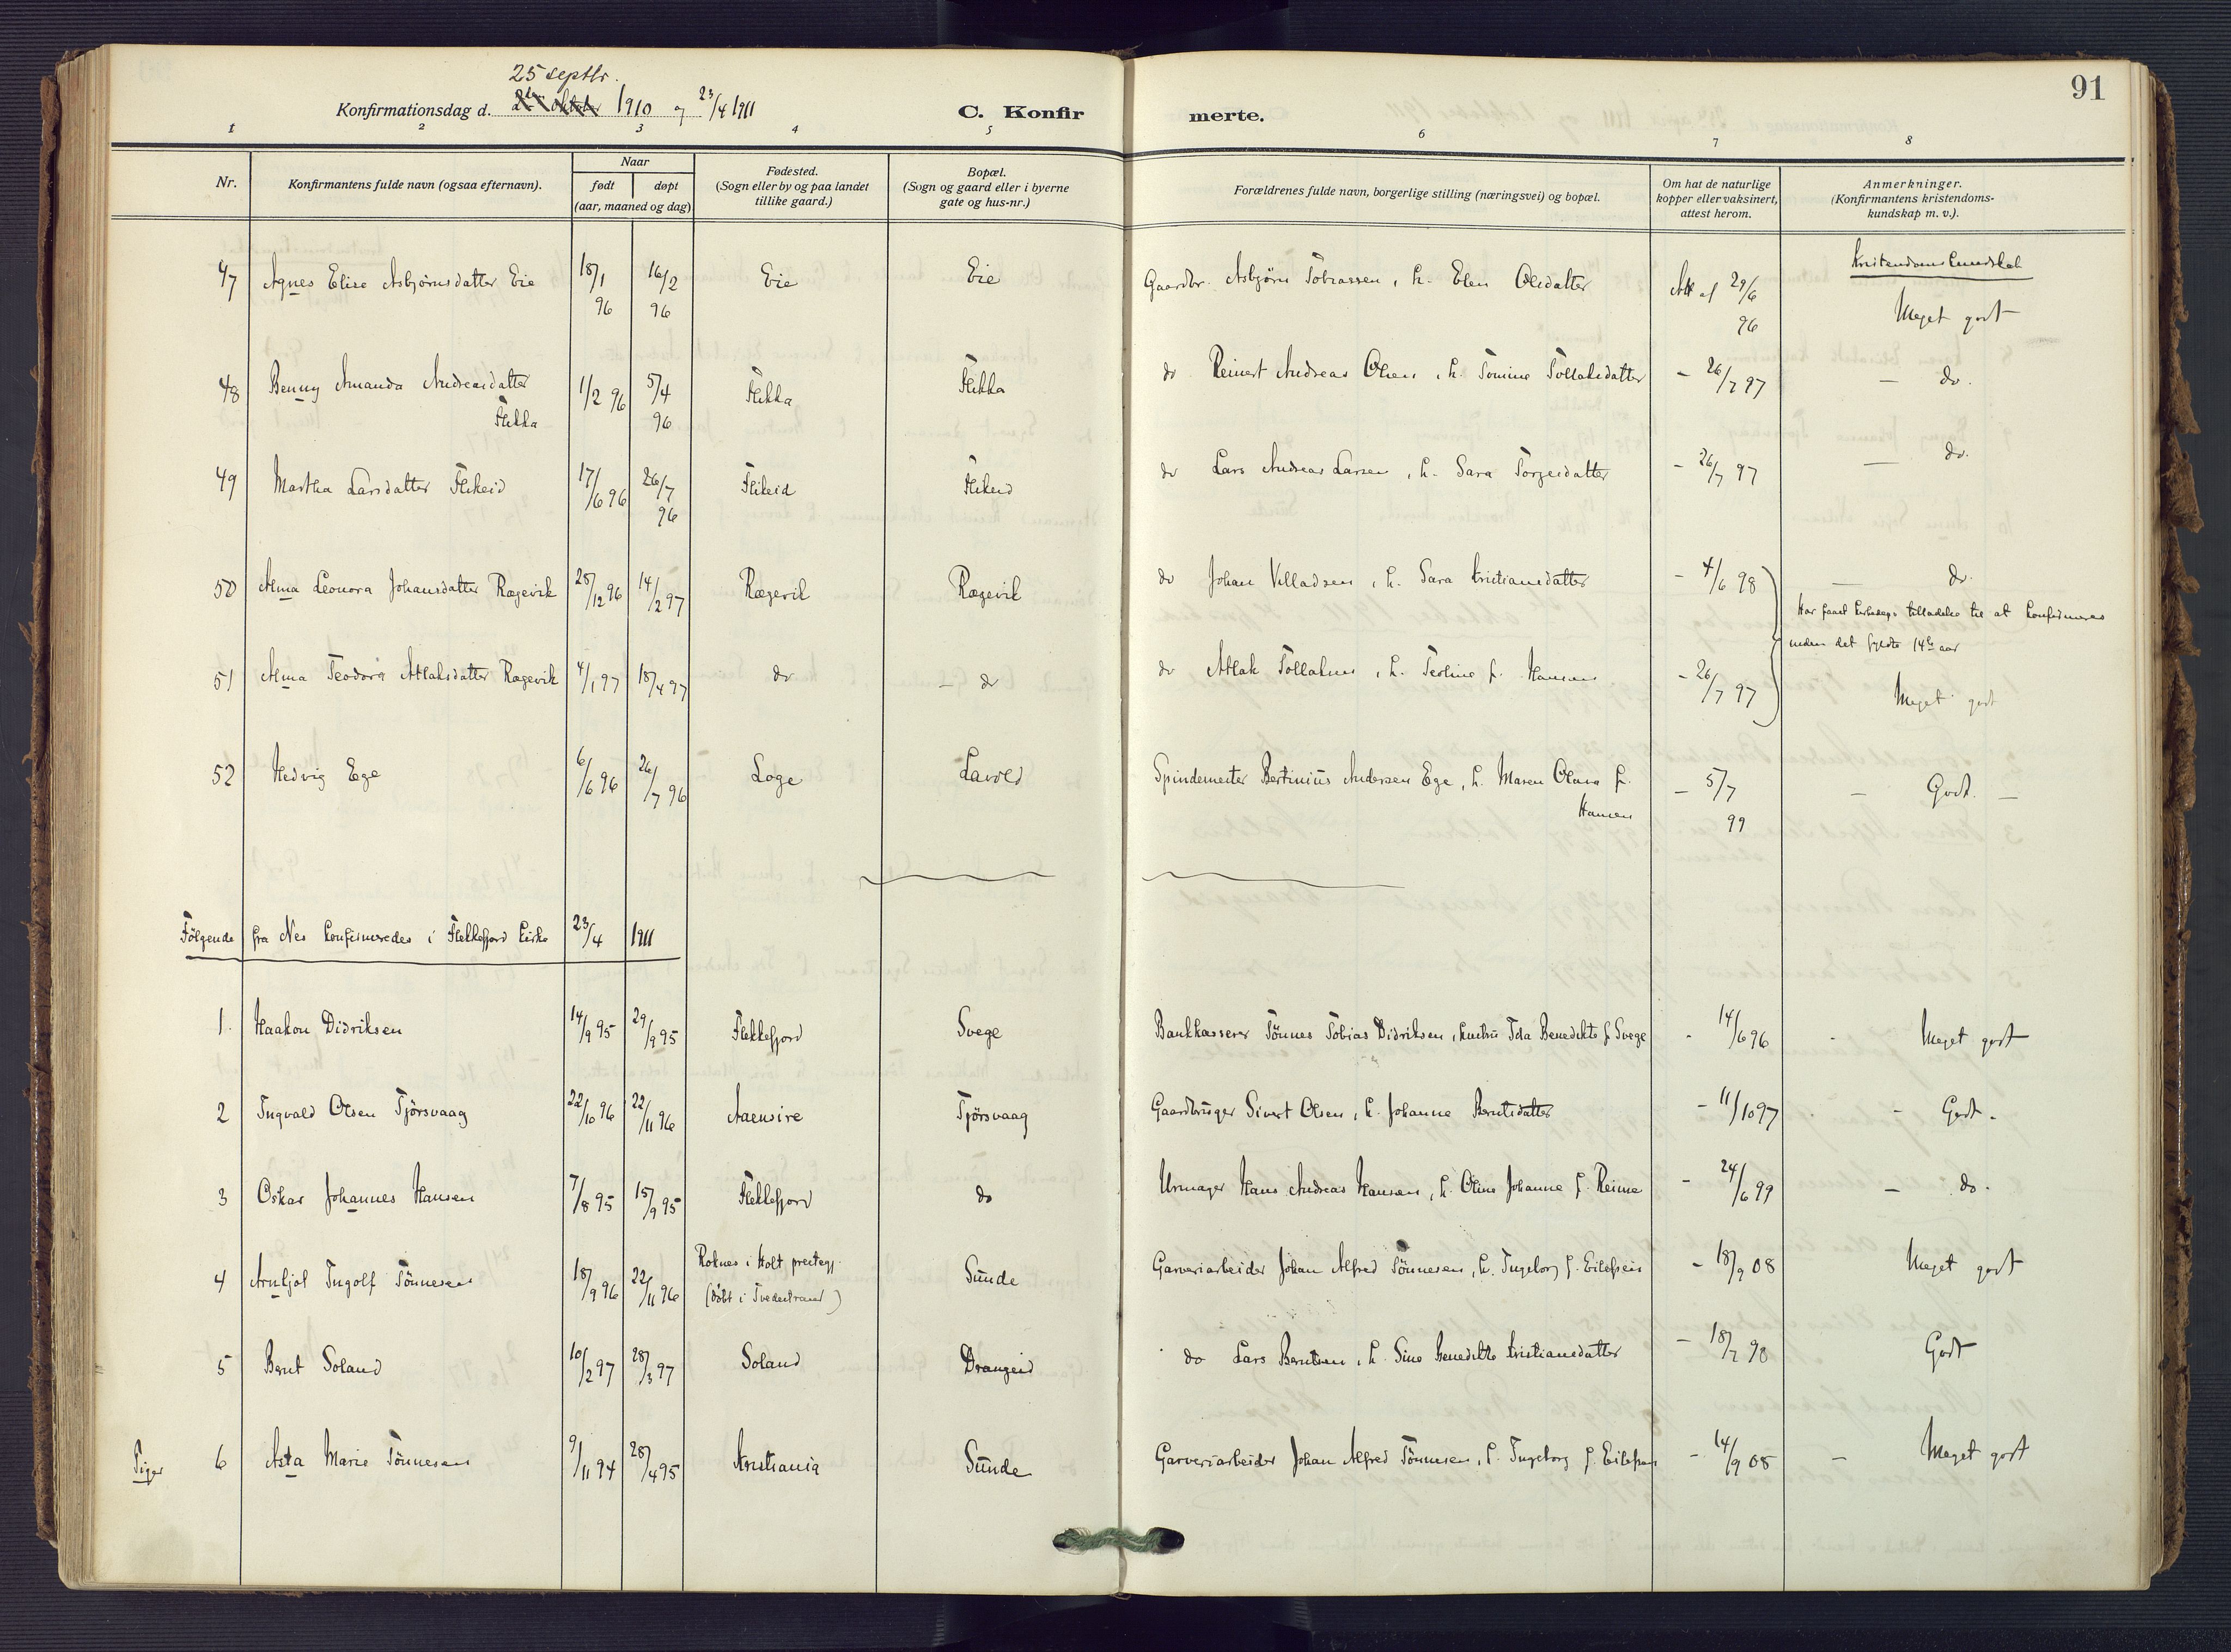 91
25 septbr.
Konfirmationsdag d. 2den oktober 1910 og 23/4 1911
C. Konfirmerte.
1 2 3 4 5 6 7 8
Nr. | Konfirmantens fulde navn (ogsaa efternavn). | Naar født døpt (aar, maaned og dag) | Fødested. (Sogn eller by og paa landet tillike gaard.) | Bopæl. (Sogn og gaard eller i byerne gate og hus-nr.) | Forældrenes fulde navn, borgerlige stilling (næringsvei) og bopæl. | Om hat de naturlige kopper eller vaksinert, attest herom. | Anmerkninger. (Konfirmantens kristendoms-kundskap m. v.).
Kristendomskundskab
47 Agnes Elise Asbjörnsdatter Eie 18/1 96 16/2 96 Eie Eie Gaardbr. Asbjörn Tobiassen, h. Elen Olsdatter Att af 29/6 96 Meget godt
48 Benny Amanda Andreasdatter Flikka 1/2 96 5/4 96 Flikka Flikka do Reinert Andreas Olsen, h. Tomine Tollaksdatter - 26/7 97 - do.
49 Martha Larsdatter Flikeid 17/6 96 26/7 96 Flikeid Flikeid do Lars Andreas Larsen, h. Sara Torgeisdatter - 26/7 97 - do.
50 Alma Leonora Johansdatter Rægevik 28/12 96 14/2 97 Rægevik Rægevik do Johan Villadsen, h. Sara Kristiansdatter - 4/6 98 - do.
Har faaet tilladelse til at konfirmeres
inden det fyldte 14de aar
51 Alma Teodora Atlaksdatter Rægevik 4/1 97 18/4 97 do - do do Atlak Tollaksen, h. Teoline f. Hansen - 26/7 97 Meget godt
52 Hedvig Ege 6/6 96 26/7 96 Loge Lavold Spindemester Bertinius Andersen Ege, h. Maren Olava f. Hansen - 5/7 99 - Godt -
Fölgende fra Nes konfirmeredes i Flekkefjord kirke 23/4 1911
1. Haakon Didriksen 14/9 95 29/9 95 Flekkefjord Svege Bankkasserer Tönnes Tobias Didriksen, hustru Ida Benedikte f Svege - 14/6 96 - Meget godt
2 Ingvald Olsen Tjörsvaag 22/10 96 22/11 96 Aaensire Tjörsvaag Gaardbruger Sivert Olsen, h. Johanne Berntsdatter - 11/10 97 - Godt -
3 Oskar Johannes Hansen 7/8 95 15/9 95 Flekkefjord do Urmager Hans Andreas Hansen, h. Oline Johanne f. Reime - 24/6 99 - do.
4 Arnljot Ingolf Tönnesen 18/9 96 22/11 96 Roknes i Holt prestegj. (döbt i Tvedestrand) Sunde Garveriarbeider Johan Alfred Tönnesen, h. Ingeborg f. Eilefsen - 18/9 08 Meget godt
5 Bernt Soland 10/2 97 28/3 97 Soland Drangeid do Lars Berntsen, h. Sine Benedikte Kristiansdatter - 18/7 98 Godt
Piger 6 Asta Marie Tönnesen 9/11 94 28/4 95 Kristiania Sunde Garveriarbeider Johan Alfred Tönnesen, h. Ingeborg f. Eilefsen - 14/9 08 - Meget godt